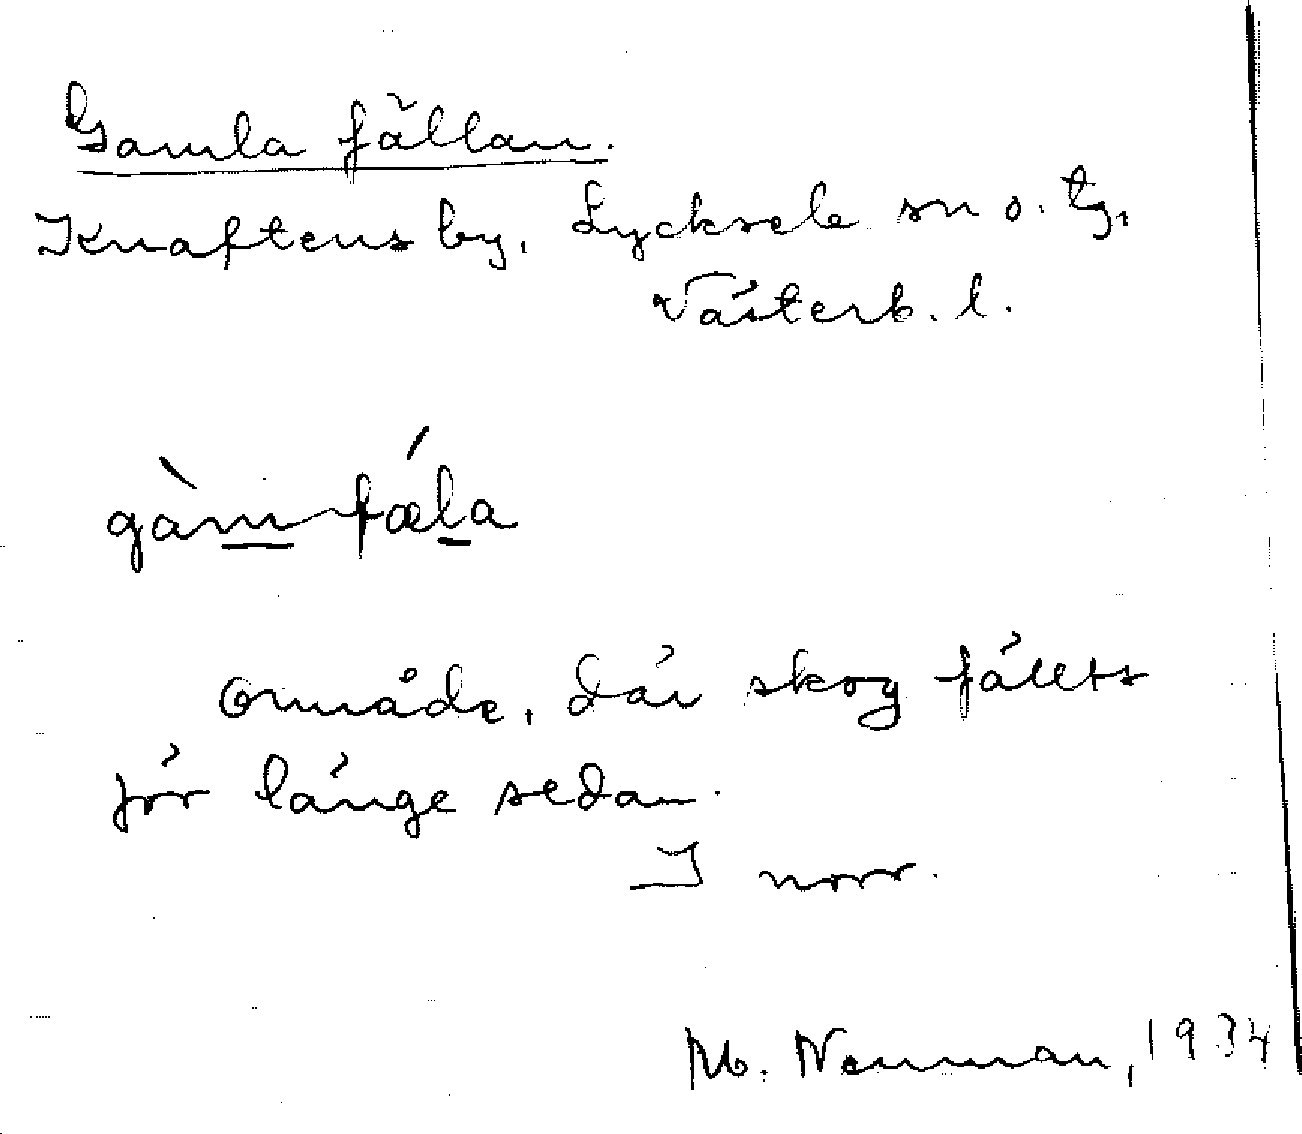 Gamla fällan.
Knaftens by, Lycksele sn o. tg,
Västerb. l.
gàm fǽla
Område, där skog fällts
för länge sedan.
I norr.
M. Nenman, 1934